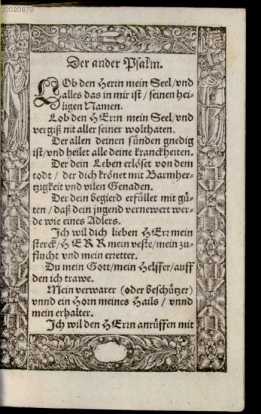 Der ander Psalm.
LOb den Herrn mein Seel/vnd
alles das in mir ist/seinen hei-
ligen Namen.
Lob den HErrn mein Seel/vnd
vergiß nit aller seiner wolthaten.
Der allen deinen sünden gnedig
ist/vnd heilet alle deine kranckheiten.
Der dein Leben erlöset von dem
todt/der dich krönet mit Barmher-
tzigkeit vnd vilen Genaden.
Der dein begierd erfüllet mit gü-
ten/daß dein jugend vernewert wer-
de wie eines Adlers.
Ich wil dich lieben HErr mein
sterck/HERR mein veste/mein zu-
flucht vnd mein erretter.
Du mein Gott/mein Helffer/auff
den ich trawe.
Mein verwarer (oder beschützer)
vnnd ein Horn meines Hails/vnnd
mein erhalter.
Ich wil den HErrn anrüffen mit